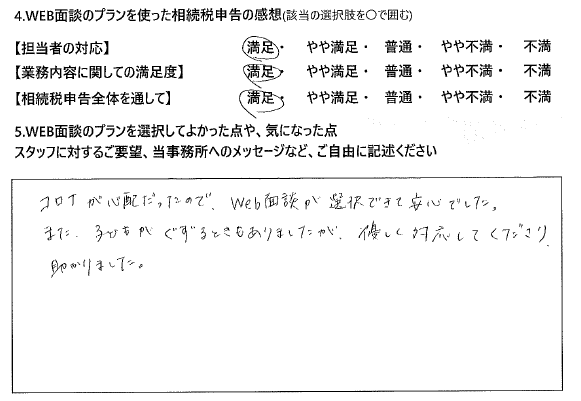 4.WEB面談のプランを使った相続税申告の感想(該当の選択肢を○で囲む)
【担当者の対応】 満足・ やや満足・ 普通・ やや不満・ 不満
【業務内容に関しての満足度】 満足・ やや満足・ 普通・ やや不満・ 不満
【相続税申告全体を通して】 満足・ やや満足・ 普通・ やや不満・ 不満
5.WEB面談のプランを選択してよかった点や、気になった点
スタッフに対するご要望、当事務所へのメッセージなど、ご自由に記述ください
コロナが心配だったので、Web面談が選択できて安心でした。
また、子どもがぐずるときもありましたが、優しく対応してくださり、
助かりました。